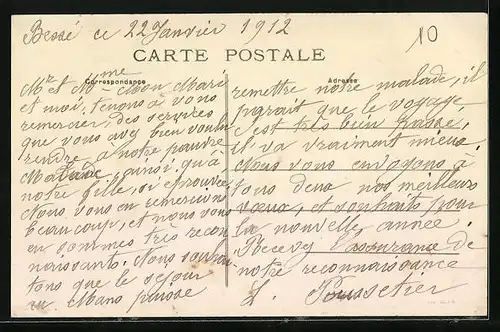 Bessé ce 22 Janvier 1912
10
CARTE POSTALE
Correspondance
Adresse
Mr et Mme Mon Mari
et moi, tenons à vous
remercier, des services
que vous avez bien voulu
rendre à notre pauvre
Malade, ainsi qu'à
notre fille, si éprouvée
Nous vous en remercions
beaucoup, et nous vous
en sommes très recon
naissants. Nous souhai
tons que le séjour
au Mans puisse
remettre notre malade, il
parait que le voyage
s'est très bien passé,
il va vraiment mieux.
Nous vous envoyons à
tous deux nos meilleurs
vœux, et souhaits pour
la nouvelle année.
Recevez l'assurance de
notre reconnaissance
L.